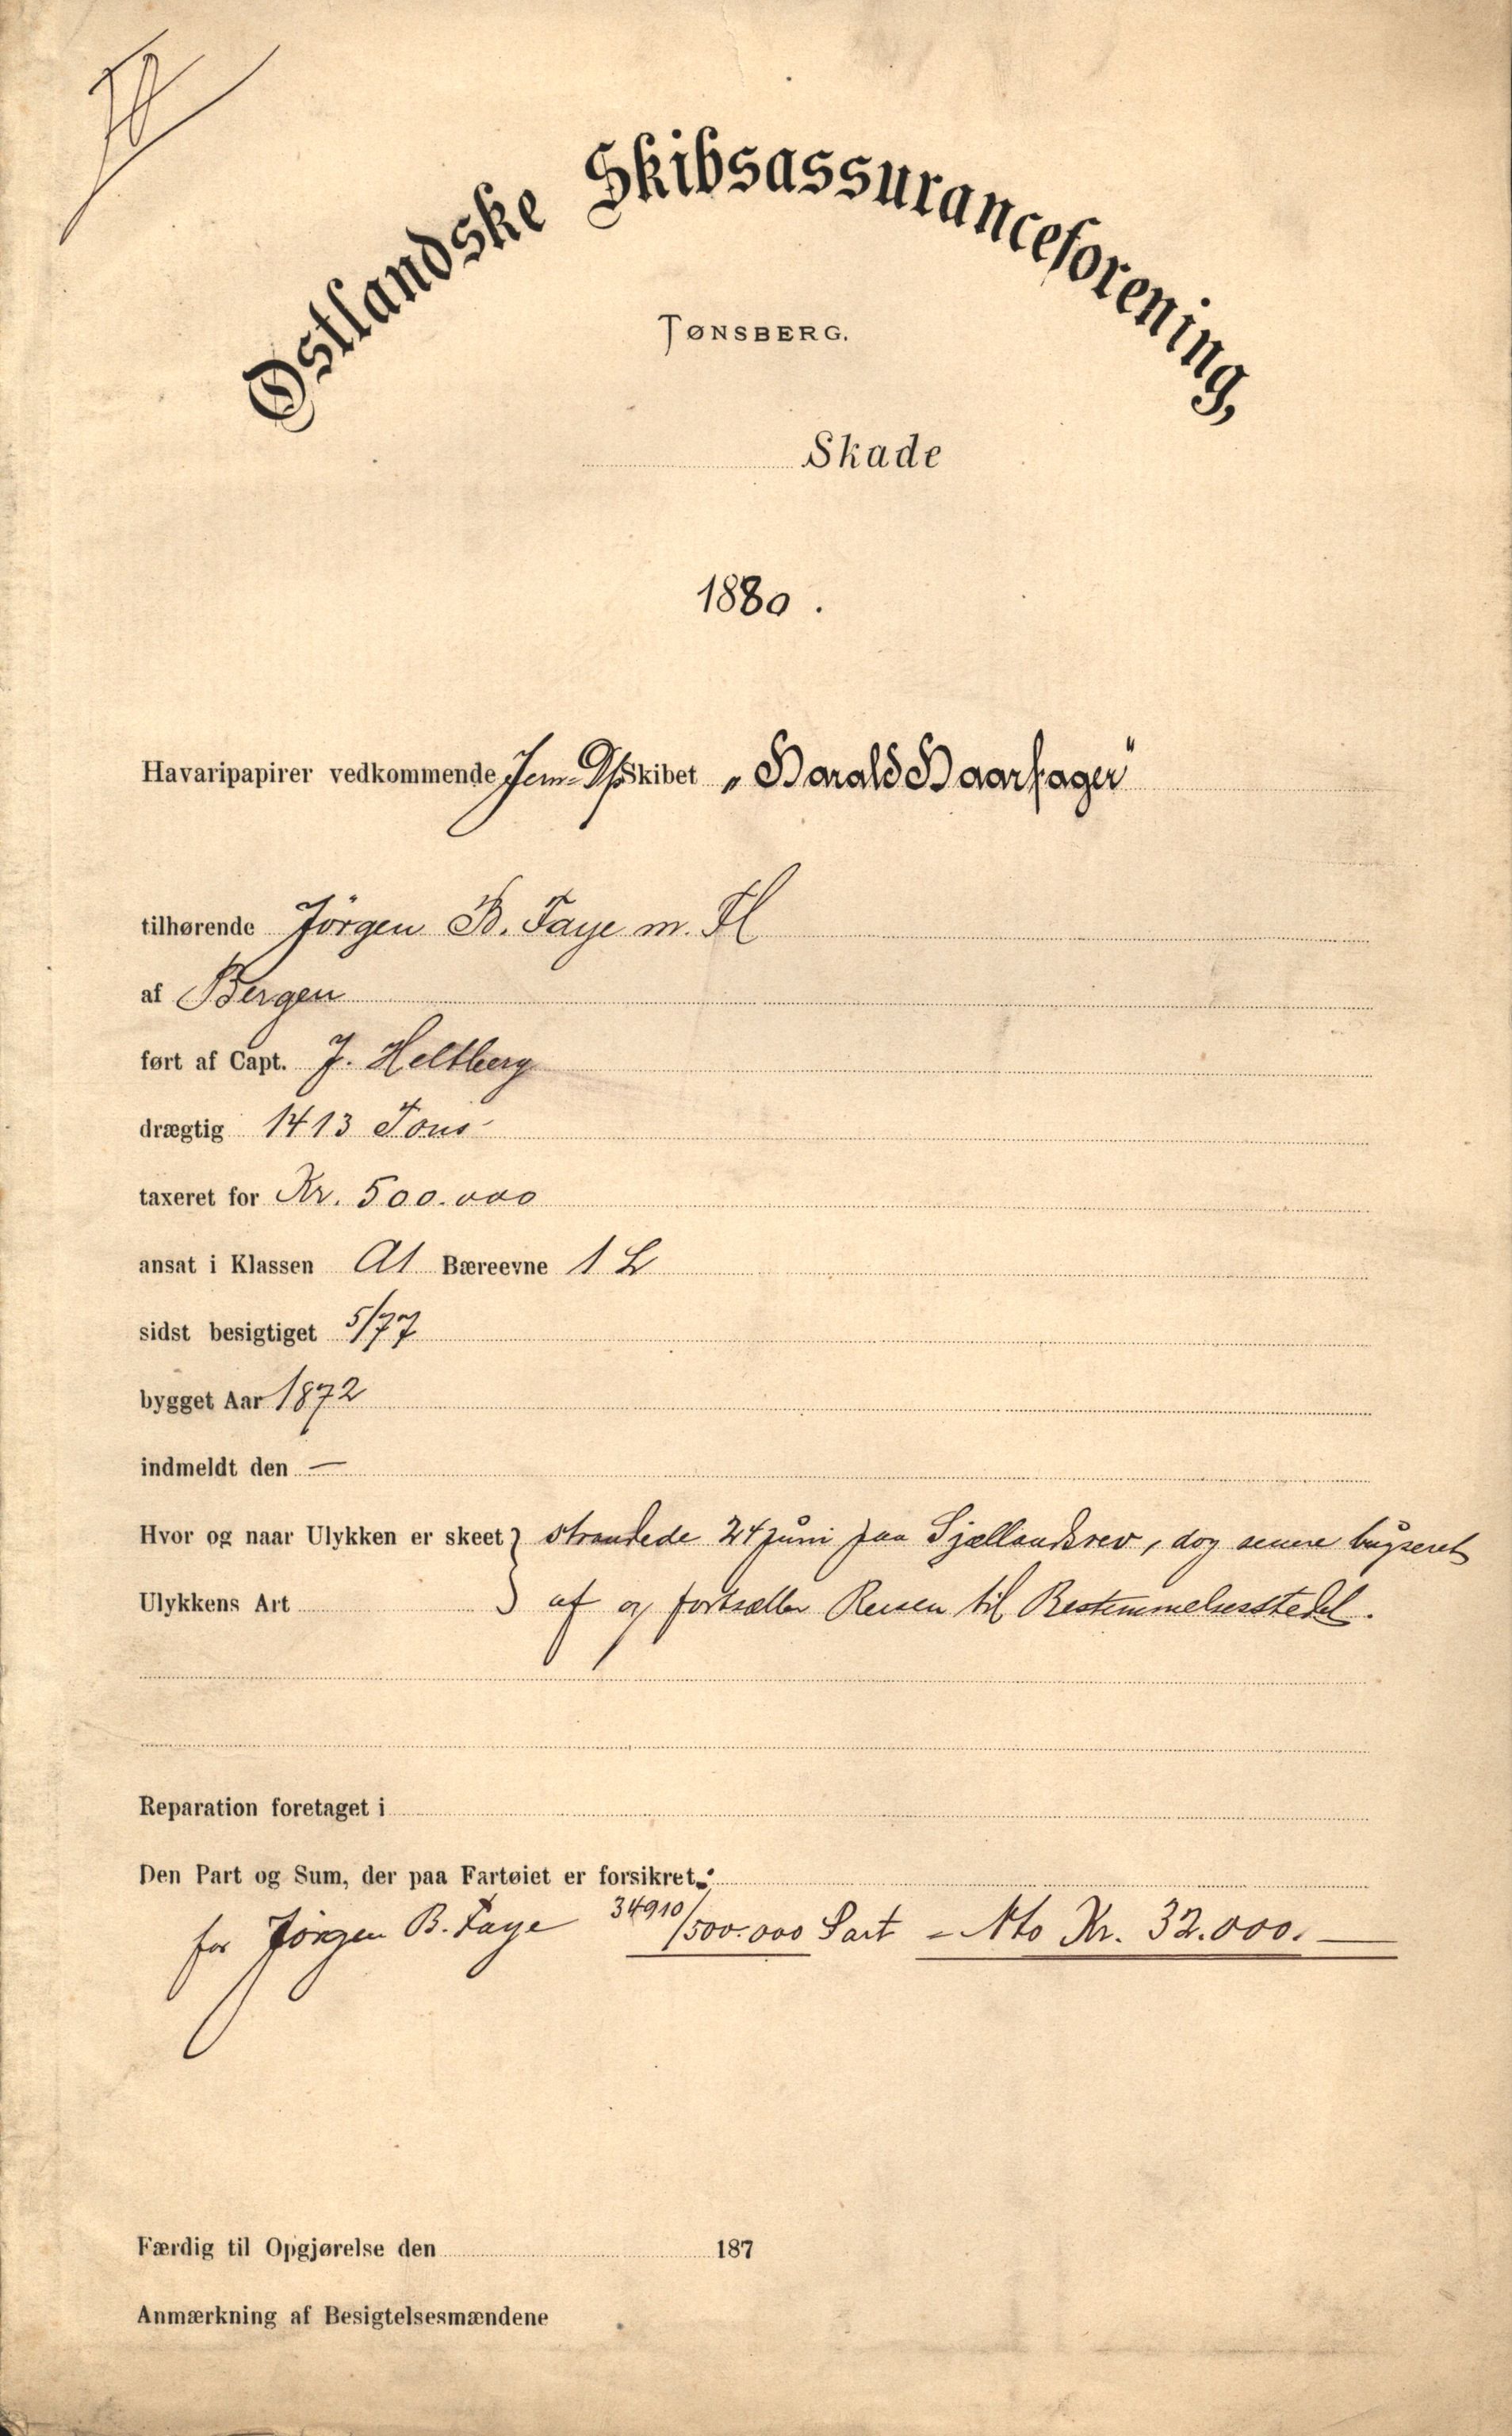 Østlandske Skibsassuranceforening,
TØNSBERG.
Skade
1880.
Havaripapirer vedkommende Jern-D/Skibet „Harald Haarfager"
tilhørende Jörgen B. Faye m. Fl
af Bergen
ført af Capt. J. Heltberg
drægtig 1413 Tons
taxeret for Kr. 500.000
ansat i Klassen A1 Bæreevne 1
sidst besigtiget 5/77
bygget Aar 1872
indmeldt den —
Hvor og naar Ulykken er skeet } strandede 24 juni paa Sjællandsrev, dog senere bugseret
Ulykkens Art } af og fortsætter Reisen til Bestemmelsesstedet.
Reparation foretaget i
Den Part og Sum, der paa Fartøiet er forsikret:
for Jörgen B. Faye 34910/500.000 Part = Nto Kr. 32.000.—
Færdig til Opgjørelse den 187
Anmærkning af Besigtelsesmændene